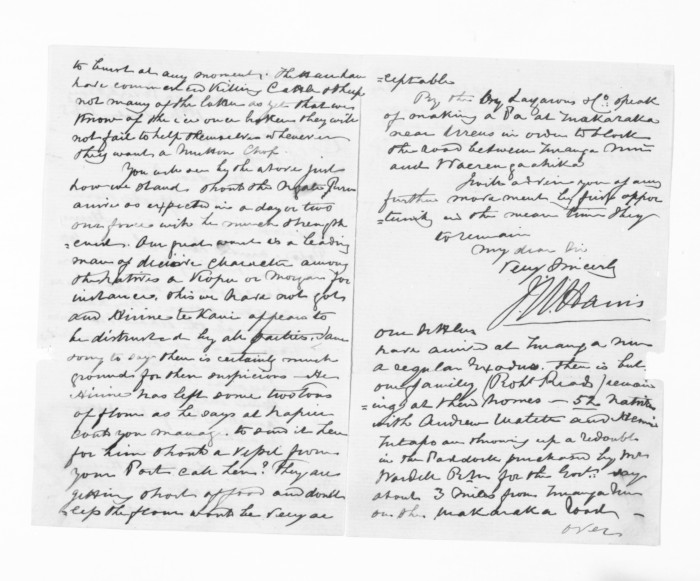 to burst at any moment. The Hauhau
have commenced killing Cattle & Sheep
not many of the latter as yet that we
know of the ice once broken they will
not fail to help themselves whenever
they want a Mutton Chop.
You will see by the above just
how we stand should the Ngati Porou
arrive as expected in a day or two
our force will be much strength
=ened. Our great want is a leading
man of decisive Character among
the Natives a Ropu or Morgan for
instance, this we have not got
and Hirini te Kani appears to
be distrusted by all parties, I am
sorry to say there is certainly much
grounds for their suspicions - He
Hirini has left some two tons
of flour as he says at Napier
could you manage to send it here
for him should a vessel from
your Port call here? They are
getting short of food and doubt
less the flour would be very ac
=ceptable
By the bye Lazarus & Co. speak
of making a Pa at Makaraka
near in order to block
the road between Turanga Nui
and Waerengaahika
I will advise you of any
further movement by first oppor
=tunity in the mean time I beg
to remain
My dear Sir
Very Sincerely
J W Harris
Our Settlers
have arrived at Turanga Nui
a regular Exodus. There is but
one family (Robt Read) remain
=ing at their homes - 52 Natives
with Andrew and Henare
are throwing up a redoubt
in the Paddock purchased by Mr
Wardell R.M. for the Govt. say
about 3 Miles from Turanga Nui
on the Makaraka road -
over